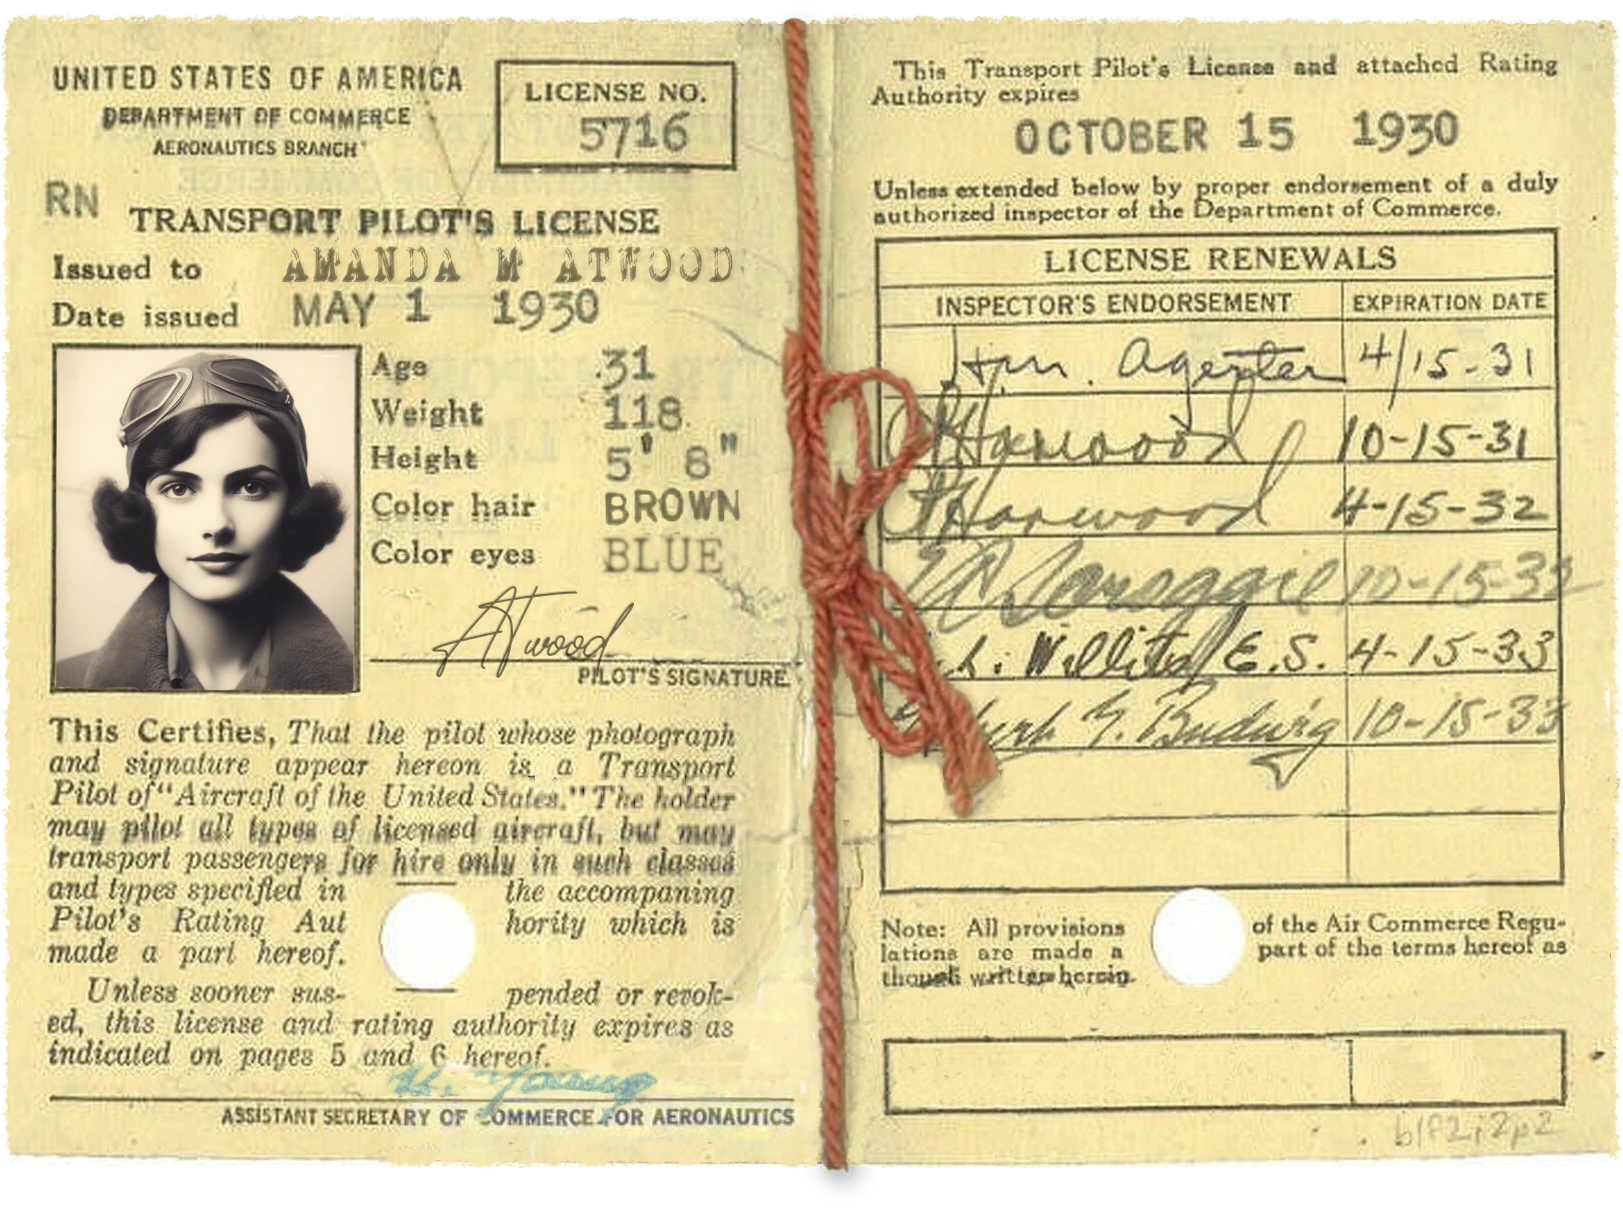 UNITED STATES OF AMERICA
DEPARTMENT OF COMMERCE
AERONAUTICS BRANCH
LICENSE NO.
5716
RN
TRANSPORT PILOT'S LICENSE
Issued to AMANDA M ATWOOD
Date issued MAY 1 1930
Age 31
Weight 118
Height 5' 8"
Color hair BROWN
Color eyes BLUE
ATwood
PILOT'S SIGNATURE
This Certifies, That the pilot whose photograph
and signature appear hereon is a Transport
Pilot of "Aircraft of the United States." The holder
may pilot all types of licensed aircraft, but may
transport passengers for hire only in such classes
and types specified in the accompaning
Pilot's Rating Aut hority which is
made a part hereof.
Unless sooner sus- pended or revok-
ed, this license and rating authority expires as
indicated on pages 5 and 6 hereof.
Young
ASSISTANT SECRETARY OF COMMERCE FOR AERONAUTICS
This Transport Pilot's License and attached Rating
Authority expires
OCTOBER 15 1930
Unless extended below by proper endorsement of a duly
authorized inspector of the Department of Commerce.
LICENSE RENEWALS
INSPECTOR'S ENDORSEMENT EXPIRATION DATE
4/15-31
Harwood 10-15-31
Harwood 4-15-32
10-15-32
Willits E.S. 4-15-33
Budwig 10-15-33
Note: All provisions of the Air Commerce Regu-
lations are made a part of the terms hereof as
though written herein.